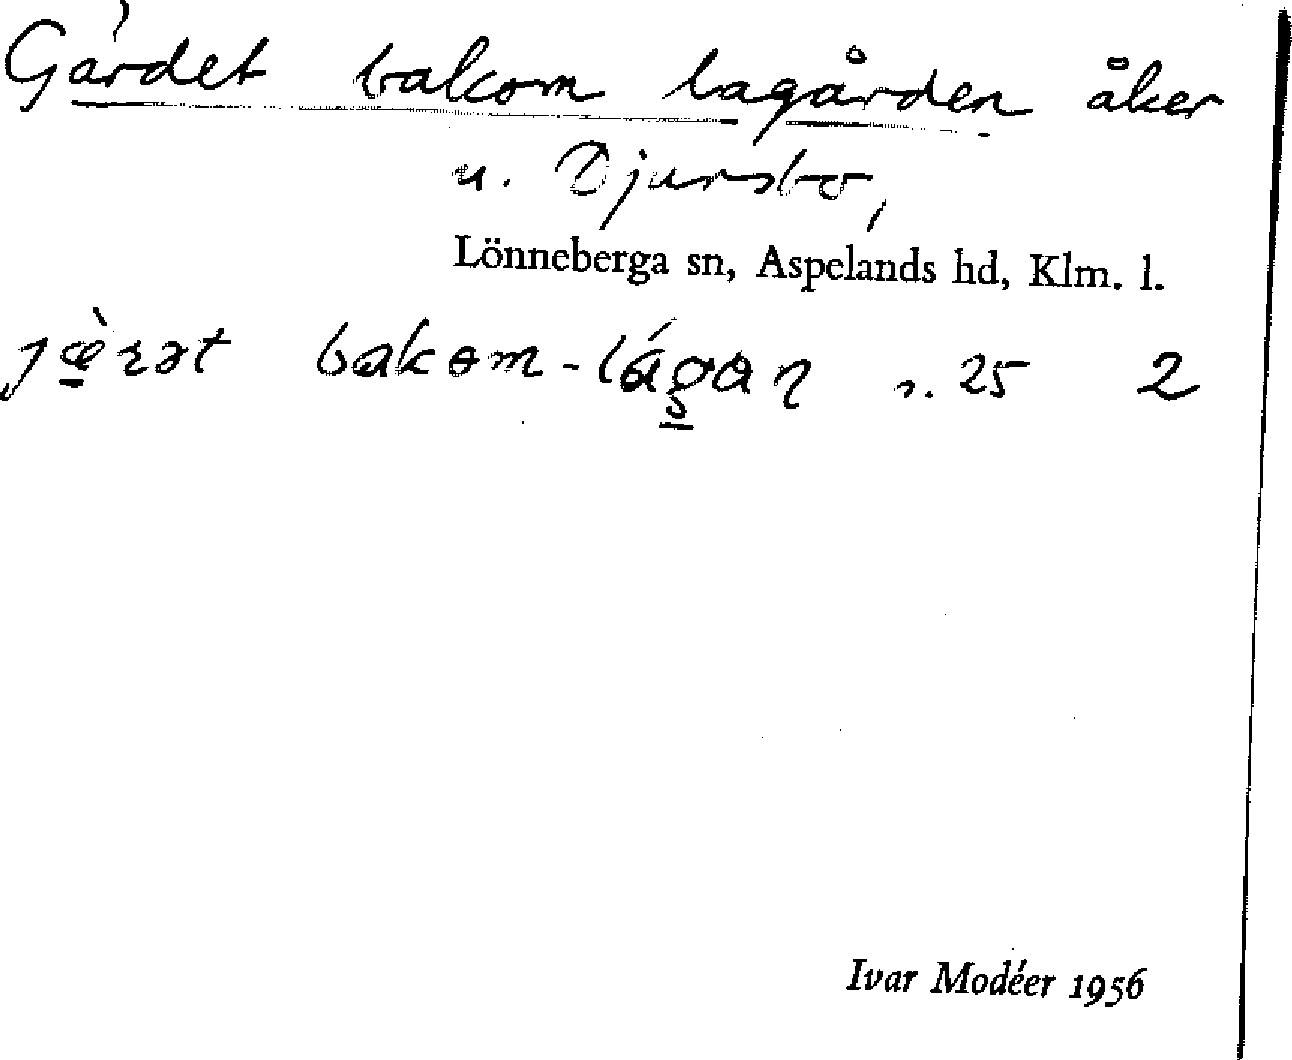 Gärdet bakom lagården åker
u. Djursbo,
Lönneberga sn, Aspelands hd, Klm. l.
bakom- s. 25 2
Ivar Modéer 1956